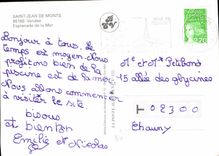 SAINT JEAN DE MONTS
85160 Vendée
Esplanade de la Mer
Bonjour à tous, le
temps est moyen. Nous
profitons bien de la
piscine et de la mer
Nous allons commencer
à visiter le site
bisous
et bientôt
Emilie et Nicolas
Mr et Mme
15 allée des
02300
Chauny